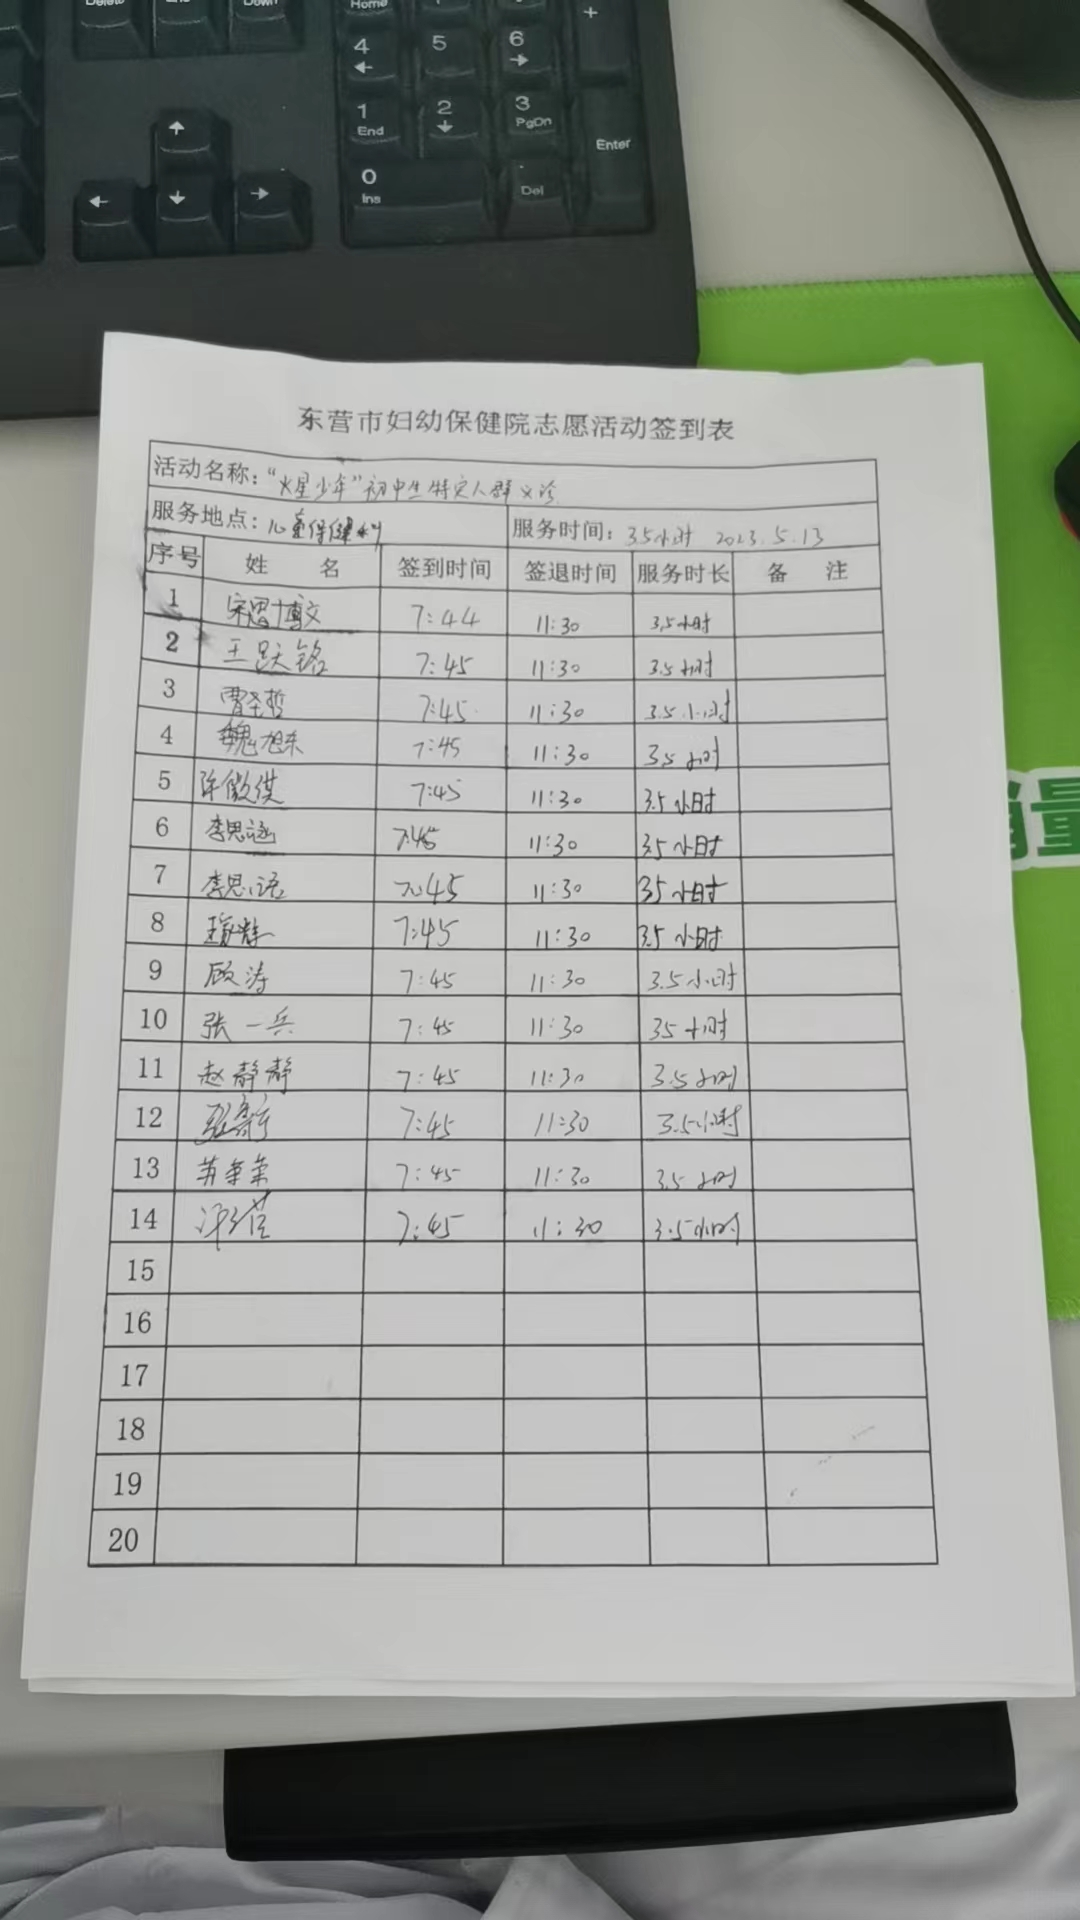 Delete
Down
Home
4
5
6
+
1 End
2
3 PgDn
Enter
0 Ins
Del
东营市妇幼保健院志愿活动签到表
活动名称："火星少年"初中生特定人群义诊
服务地点：儿童保健科 服务时间：3.5小时 2023.5.13
序号 姓 名 签到时间 签退时间 服务时长 备 注
1 7:44 11:30 3.5小时
2 王跃铭 7:45 11:30 3.5小时
3 曹圣哲 7:45 11:30 3.5小时
4 魏旭东 7:45 11:30 3.5小时
5 7:45 11:30 3.5小时
6 李思涵 7:45 11:30 3.5小时
7 李思语 7:45 11:30 3.5小时
8 7:45 11:30 3.5小时
9 顾涛 7:45 11:30 3.5小时
10 张一兵 7:45 11:30 3.5小时
11 赵静静 7:45 11:30 3.5小时
12 7:45 11:30 3.5小时
13 7:45 11:30 3.5小时
14 7:45 11:30 3.5小时
15
16
17
18
19
20
量